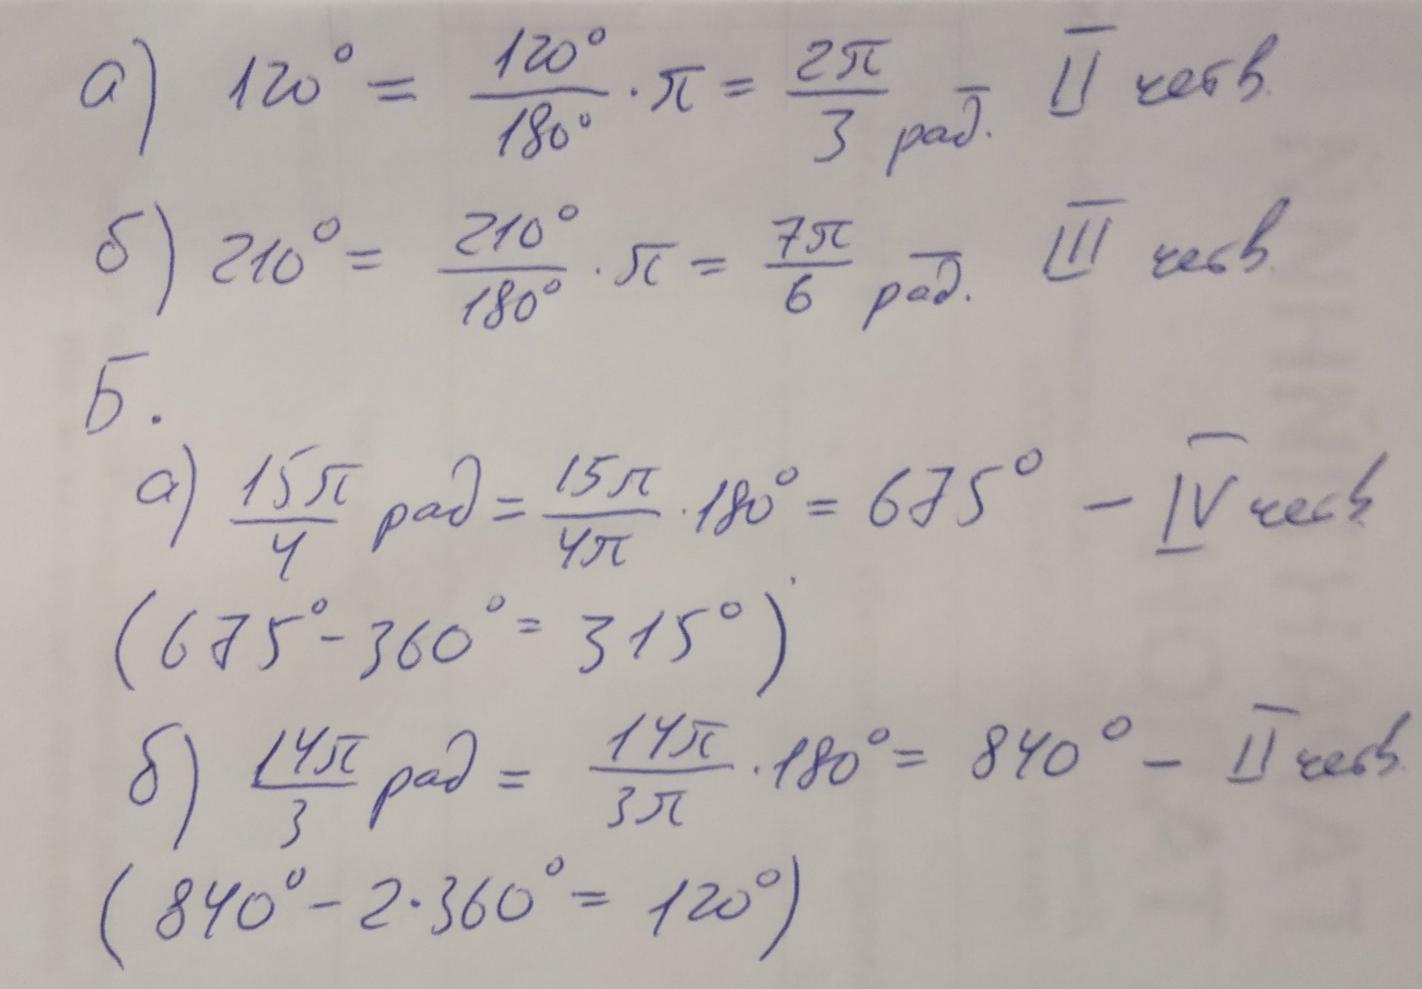 а) 120° = 120°/180° · π = 2π/3 рад. II четв.
б) 210° = 210°/180° · π = 7π/6 рад. III четв.
Б.
а) 15π/4 рад = 15π/4π · 180° = 675° – IV четв
(675° - 360° = 315°)
б) 14π/3 рад = 14π/3π · 180° = 840° – II четв.
(840° - 2·360° = 120°)